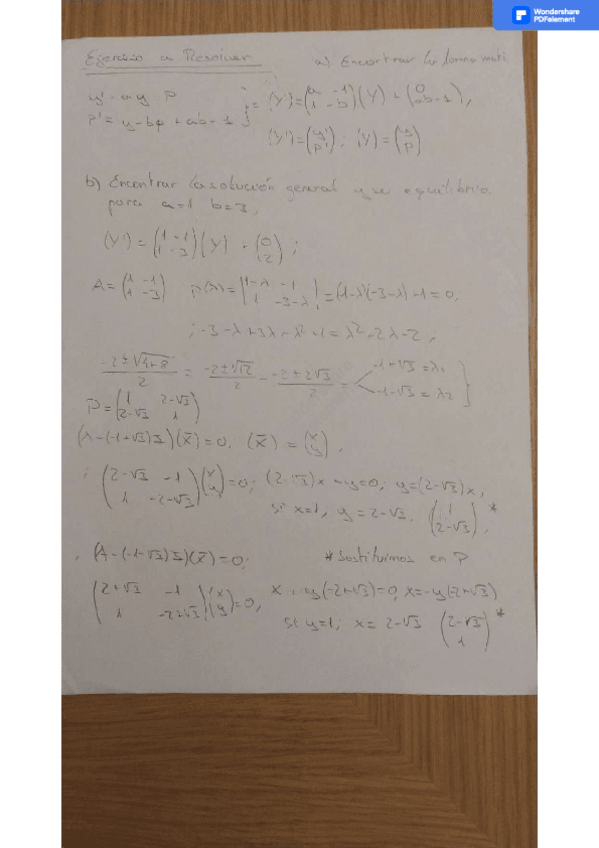 Wondershare
PDFelement
Ejercicio a Resolver
a) Encontrar la forma mati
y' = ay p
p' = y-bp + ab-1 } = (Y') = (a -1; 1 -b)(Y) + (0; ab-1),
(Y') = (y'; p'); (Y) = (y; p)
b) Encontrar la solución general y se equilibrio
para a=1 b=3,
(Y') = (1 -1; 1 -3)(Y) + (0; 2);
A = (1 -1; 1 -3) p(λ) = |1-λ -1; 1 -3-λ| = (1-λ)(-3-λ)+1=0,
; -3-λ+3λ+λ²+1 = λ²+2λ-2;
-2±√4+8 / 2 = -2±√12 / 2 = -2±2√3 / 2 = -1+√3=λ₁
-1-√3=λ₂
P = (1 2-√3; 2-√3 1)
(A-(-1+√3)I)(x̄)=0, (x̄) = (x; y),
; (2-√3 -1; 1 -2-√3)(x; y)=0; (2-√3)x-y=0; y=(2-√3)x,
si x=1, y=2-√3. (1; 2-√3),*
. (A-(-1-√3)I)(x̄)=0; * Sustituimos en P
(2+√3 -1; 1 -2+√3)(x; y)=0, x+y(-2+√3)=0, x=-y(-2+√3)
si y=1; x=2-√3 (2-√3; 1)*